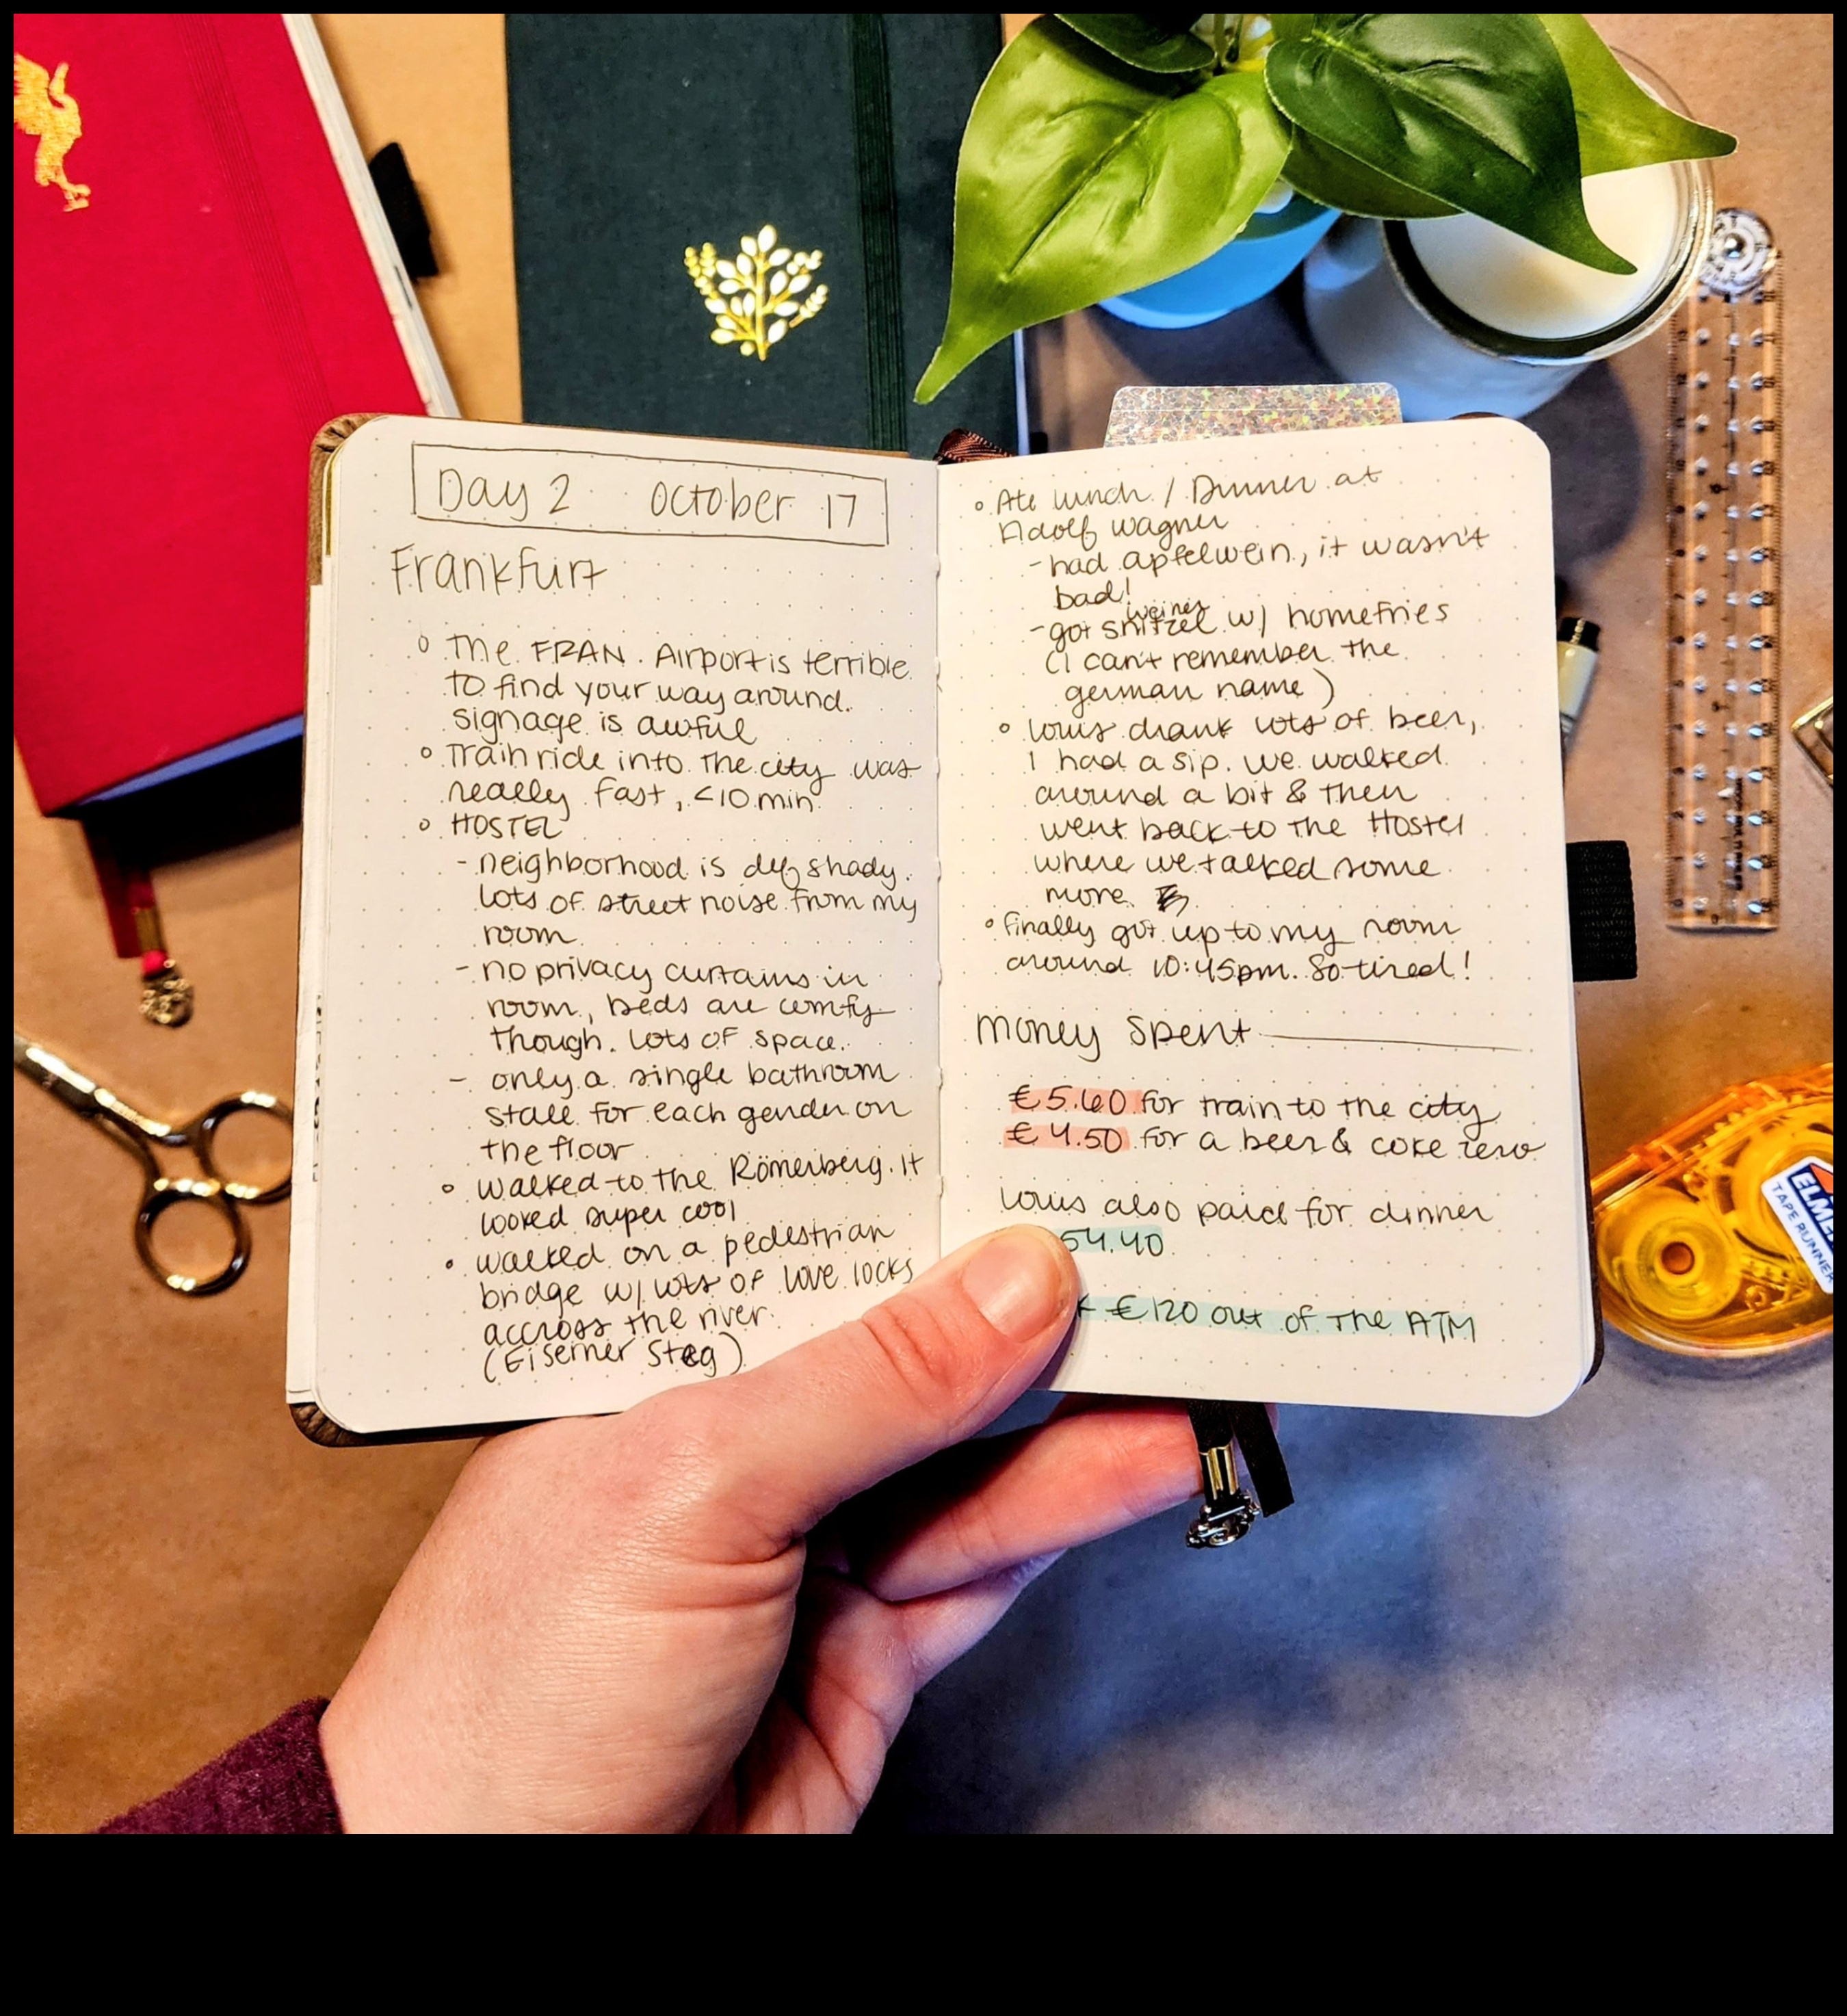 Day 2 October 17
Frankfurt
The FRAN. Airport is terrible
to find your way around.
signage is awful
Train ride into the city was
really fast, <10 min.
HOSTEL
- neighborhood is def shady.
lots of street noise from my
room.
- no privacy curtains in
room, beds are comfy
though. lots of space.
- only a single bathroom
stall for each gender on
the floor
walked to the Römerberg. It
looked super cool
walked on a pedestrian
bridge w/ lots of love locks
accross the river.
(Eiserner Steg)
Ate lunch / Dinner at
Adolf Wagner
- had apfelwein, it wasn't
bad!
weiner
- got snitzel w/ homefries
(I can't remember the
german name)
Louis drank lots of beer,
I had a sip. we walked
around a bit & then
went back to the Hostel
where we talked some
more
finally got up to my room
around 10:45pm. So tired!
Money Spent
€5.60 for train to the city
€4.50 for a beer & coke zero
Louis also paid for dinner
54.40
€120 out of the ATM
ELME
TAPE RUNNER